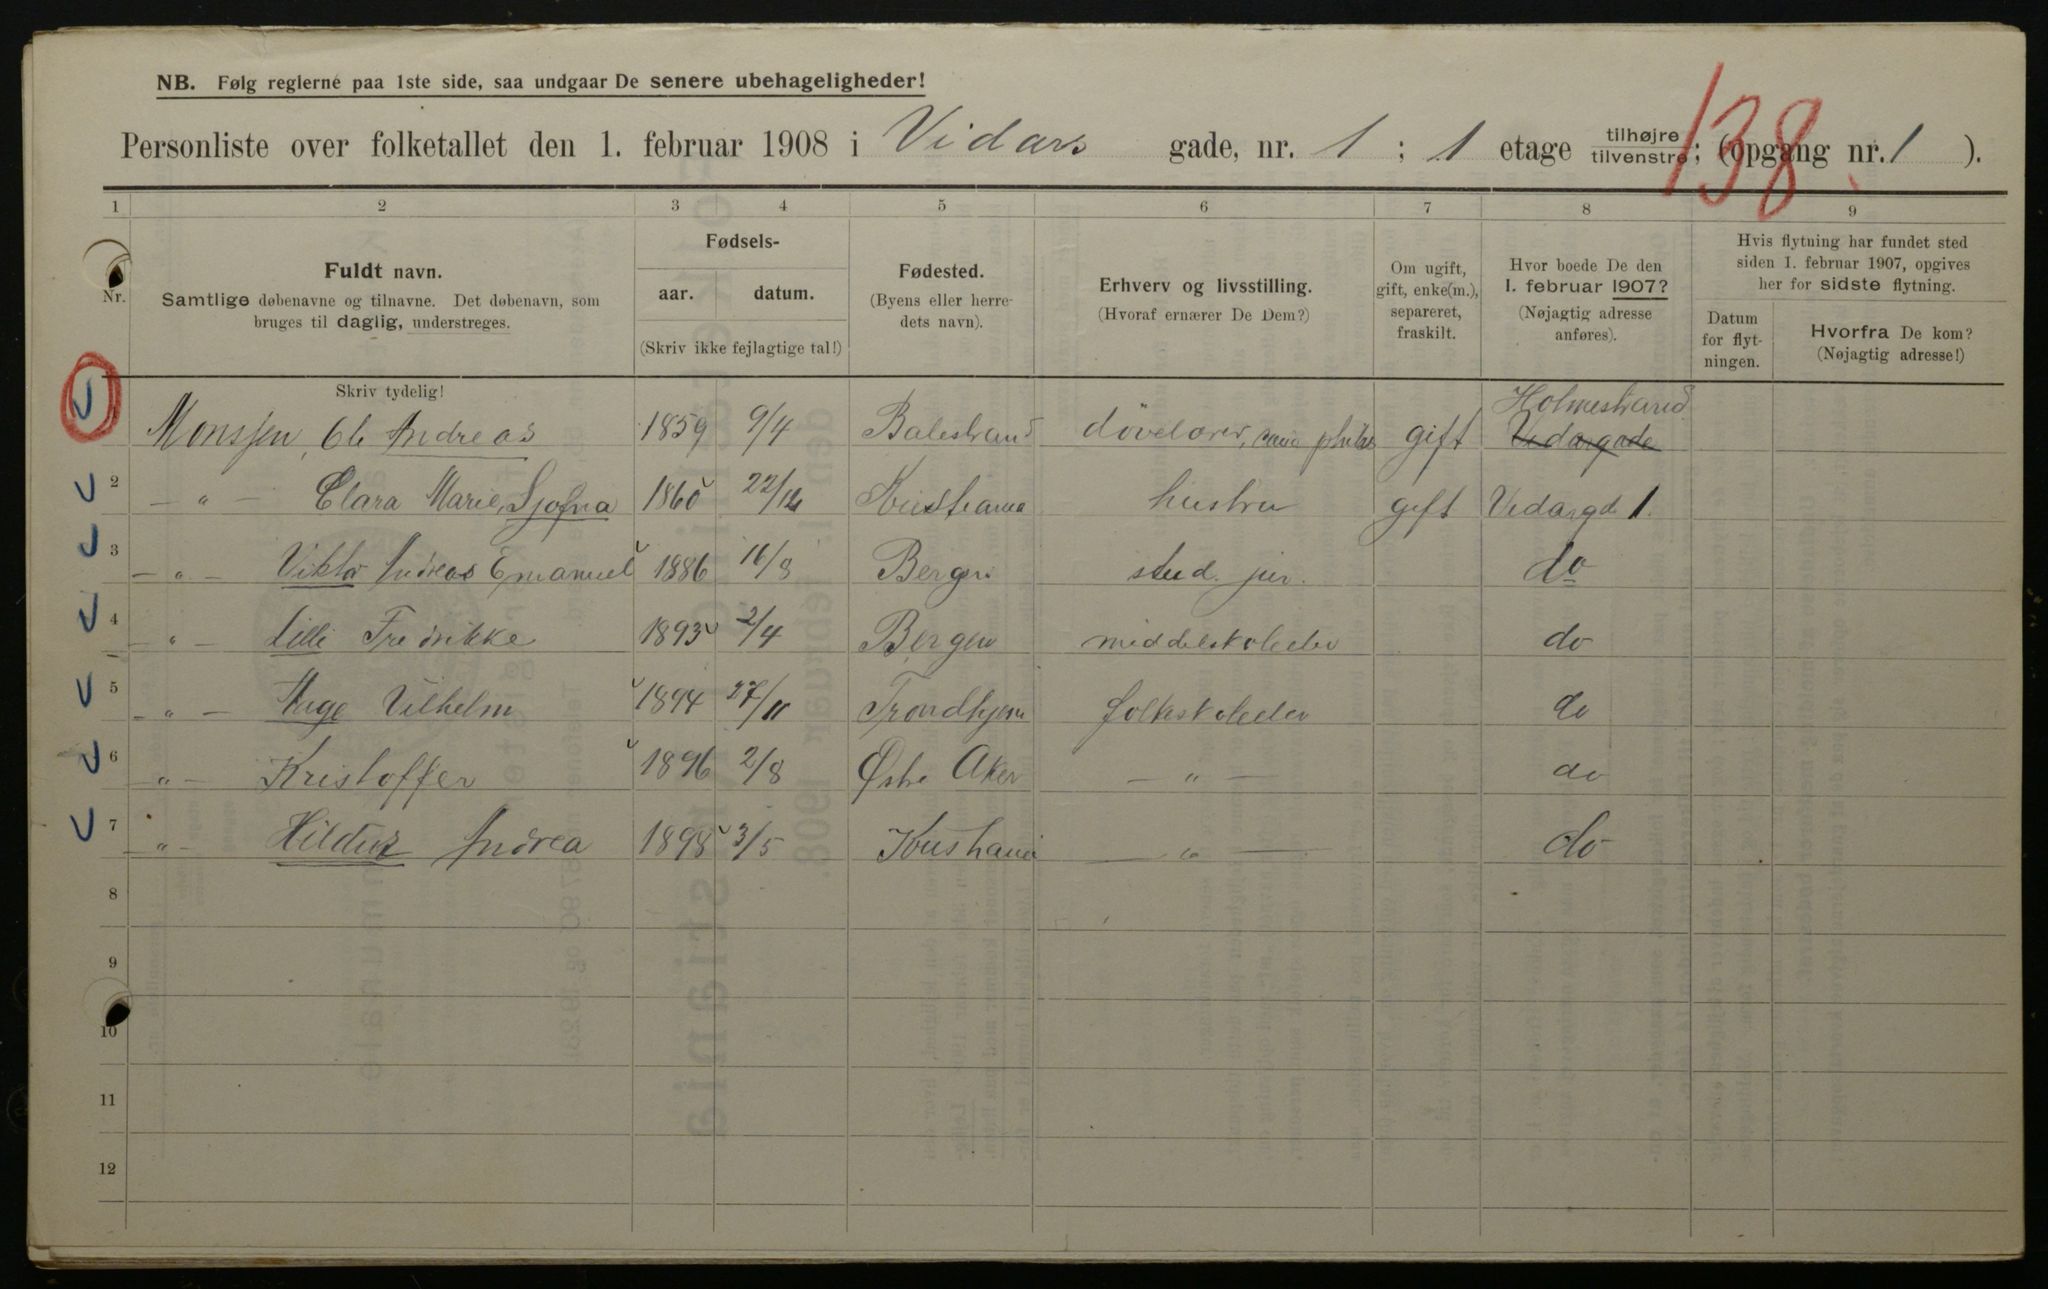 NB. Følg reglerne paa 1ste side, saa undgaar De senere ubehageligheder!
138
Personliste over folketallet den 1. februar 1908 i Vidars gade, nr. 1 ; 1 etage tilhøjre tilvenstre; (opgang nr. 1 ).
1 2 3 4 5 6 7 8 9
Nr.
Fuldt navn.
Samtlige døbenavne og tilnavne. Det døbenavn, som
bruges til daglig, understreges.
Skriv tydelig!
Fødsels-
aar. datum.
(Skriv ikke fejlagtige tal!)
Fødested.
(Byens eller herre-
dets navn).
Erhverv og livsstilling.
(Hvoraf ernærer De Dem?)
Om ugift,
gift, enke(m.),
separeret,
fraskilt.
Hvor boede De den
1. februar 1907?
(Nøjagtig adresse
anføres).
Hvis flytning har fundet sted
siden 1. februar 1907, opgives
her for sidste flytning.
Datum
for flyt-
ningen.
Hvorfra De kom?
(Nøjagtig adresse!)
Holmestrand
1 Monsjen, Ole Andreas 1859 9/4 Balestrand døvelærer, phil gift Vidargade
2 — " — Clara Marie, Sjofna 1860 22/12 Kristiania hustru gift Vidargd 1.
3 — " — Viktor Andreas Emanuel 1886 16/8 Bergen stud. jur. do
4 " — Lilli Fredrikke 1893 2/4 Bergen middelskoleelev do
5 — " — Aage Vilhelm 1894 27/11 Trondhjem folkeskoleelev do
6 " — Kristoffer 1896 2/8 Østre Aker — " — do
7 " — Hildur Andrea 1898 3/5 Kristiania — " — do
8
9
10
11
12